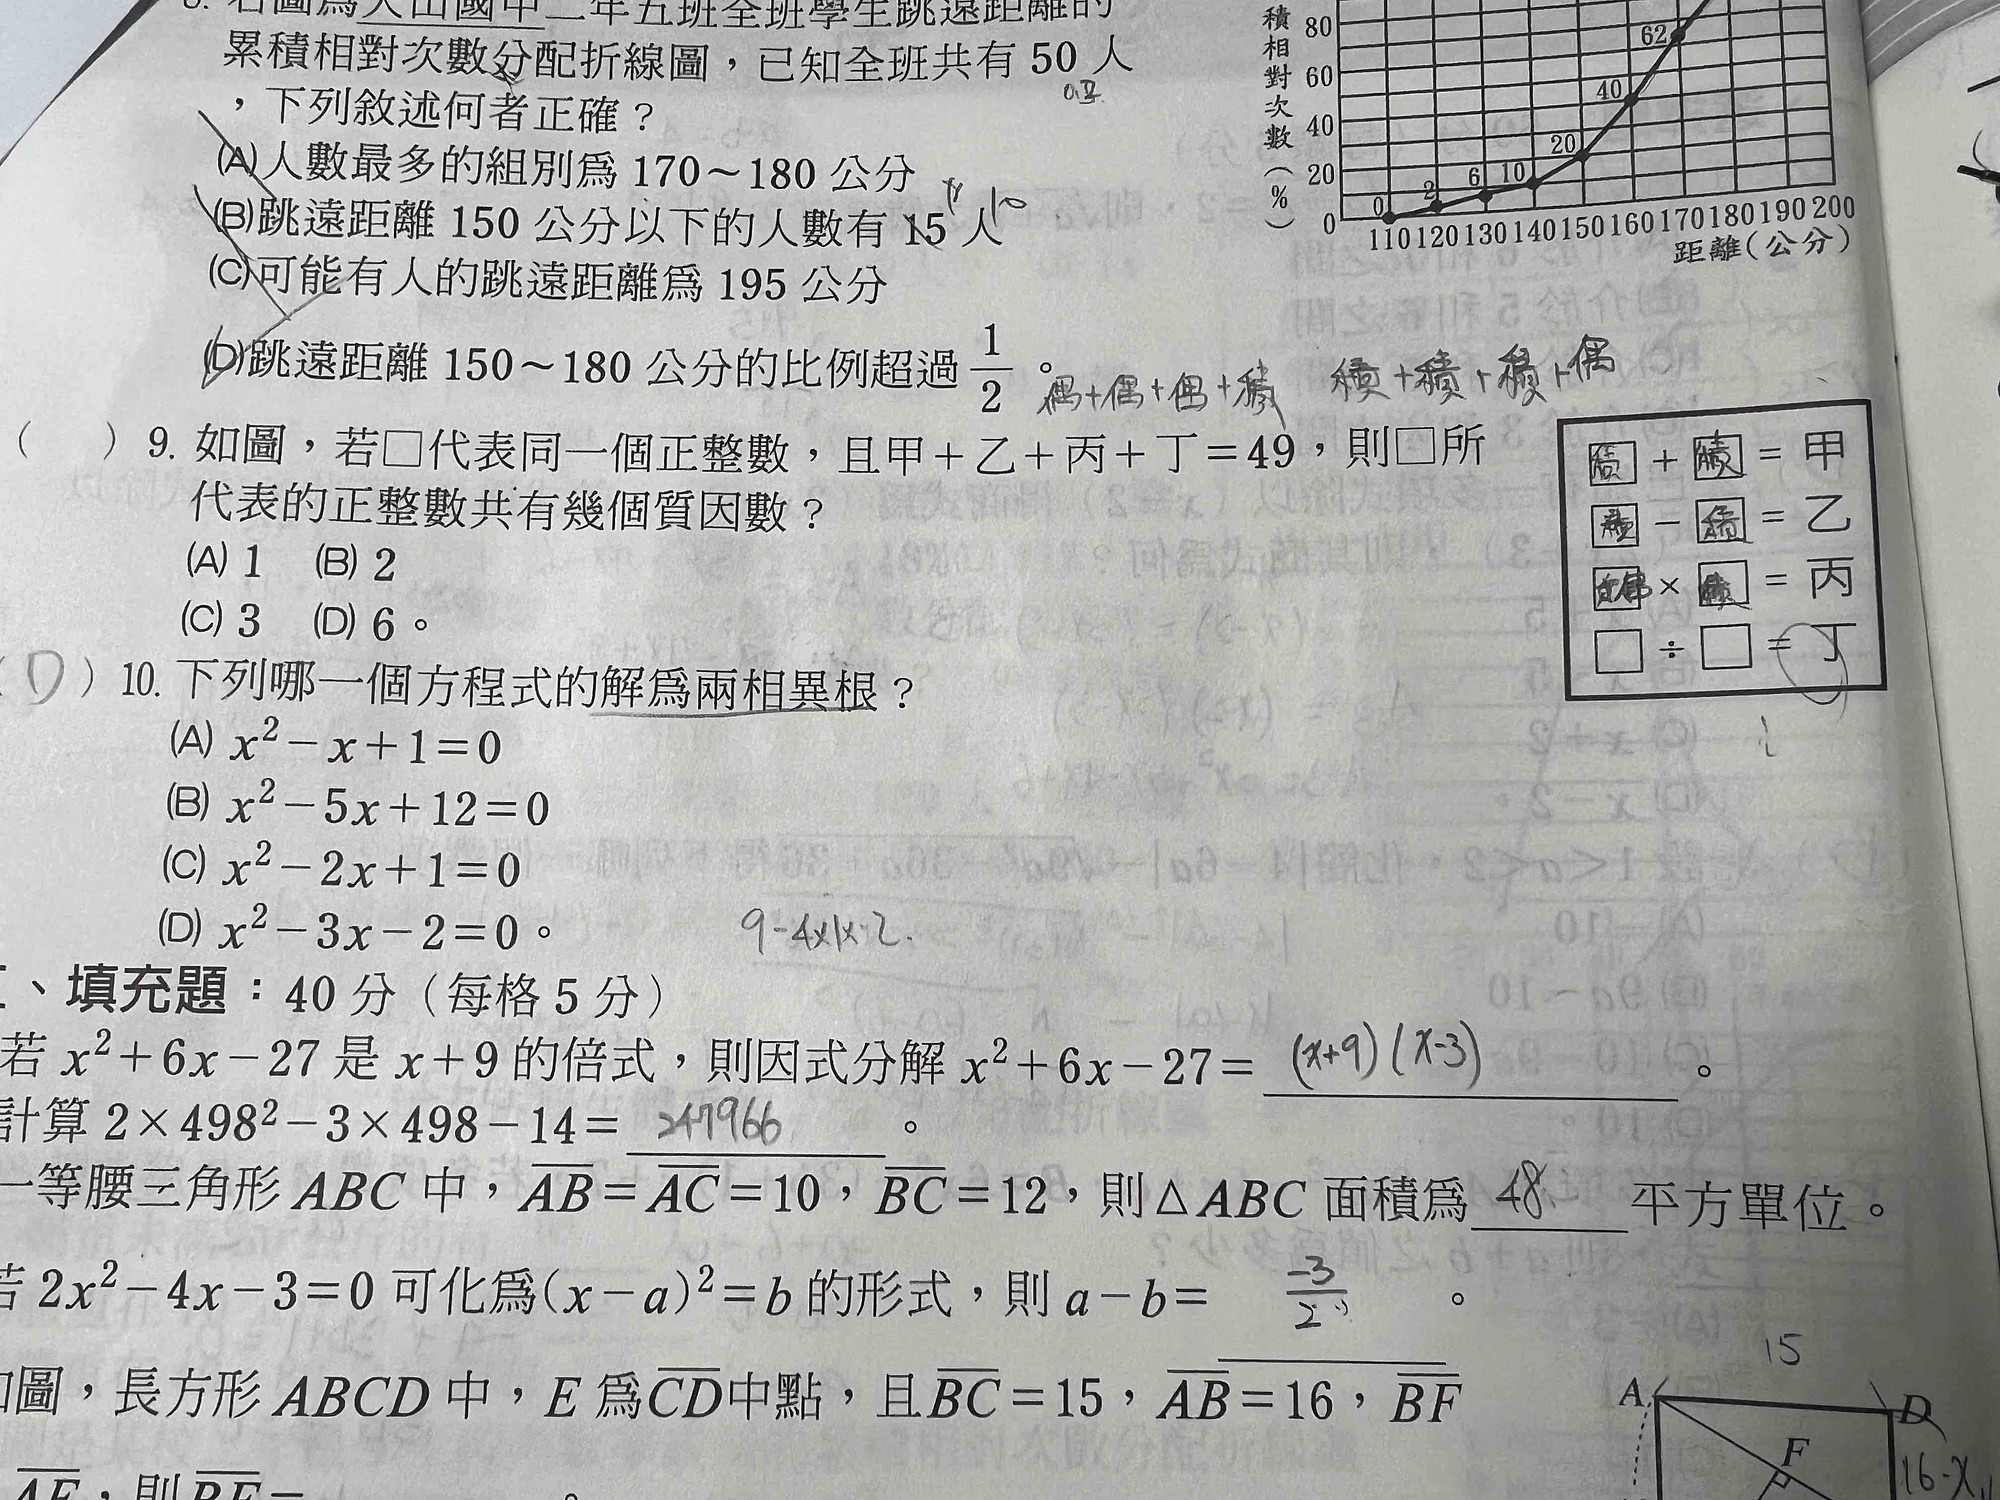 8. 右圖為大山國中二年五班全班學生跳遠距離的
累積相對次數分配折線圖，已知全班共有 50 人
，下列敘述何者正確？
(A)人數最多的組別為 170～180 公分
(B)跳遠距離 150 公分以下的人數有 15 人 10
(C)可能有人的跳遠距離為 195 公分
(D)跳遠距離 150～180 公分的比例超過 1/2。
積相對次數(%)
80
60
40
20
0
0 2 6 10 20 40 62
110 120 130 140 150 160 170 180 190 200
距離(公分)
偶+偶+偶+積 積+積+積+偶
（ ）9. 如圖，若□代表同一個正整數，且甲＋乙＋丙＋丁＝49，則□所
代表的正整數共有幾個質因數？
(A) 1 (B) 2
(C) 3 (D) 6。
□＋□＝甲
□－□＝乙
□×□＝丙
□÷□＝丁
（D）10. 下列哪一個方程式的解為兩相異根？
(A) x²－x＋1＝0
(B) x²－5x＋12＝0
(C) x²－2x＋1＝0
(D) x²－3x－2＝0。
9-4×1×-2.
二、填充題：40 分（每格 5 分）
若 x²＋6x－27 是 x＋9 的倍式，則因式分解 x²＋6x－27＝(x+9)(x-3)。
計算 2×498²－3×498－14＝247966。
一等腰三角形 ABC 中，AB＝AC＝10，BC＝12，則△ABC 面積為 48 平方單位。
若 2x²－4x－3＝0 可化為(x－a)²＝b 的形式，則 a－b＝-3/2。
如圖，長方形 ABCD 中，E 為CD中點，且BC＝15，AB＝16，BF
AE，則BF＝ 。
15
A D
F
16-x